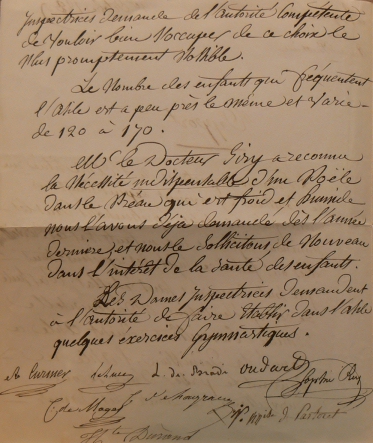 Inspectrices demande de l'autorité Compétente
de Vouloir bien s'occuper de ce choix le
Plus promptement Possible.
Le Nombre des enfants qui fréquentent
l'Asile est a peu près le même et Varie
de 120 à 170.
Mr le Docteur a reconnu
la Nécessité indispensable d'un Poële
dans le Préau qui est froid et humide
nous l'avons déja demandé dès l'année
dernière, et nous le Sollicitons de Nouveau
dans l'intérêt de la Santé des enfants.
Les Dames Inspectrices demandent
à l'autorité de faire établir dans l'asile
quelques exercices Gymnastiques.
Oudard
Sophie
de Pastoret